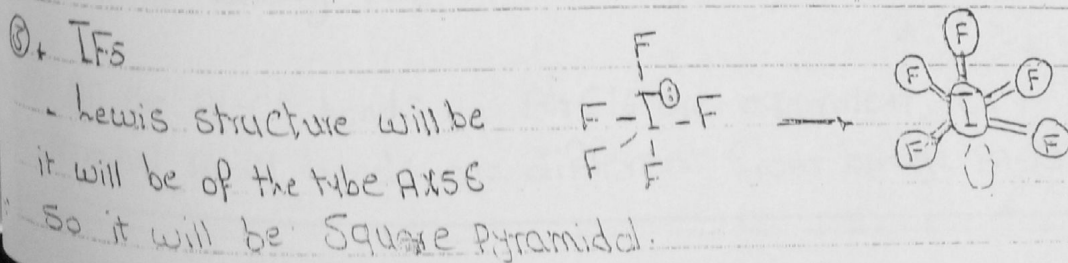 ⑤. IF5
- Lewis structure will be
it will be of the tybe AX5E
So it will be Square Pyramidal.
F
F - I - F
F F
F
F F
I
F F